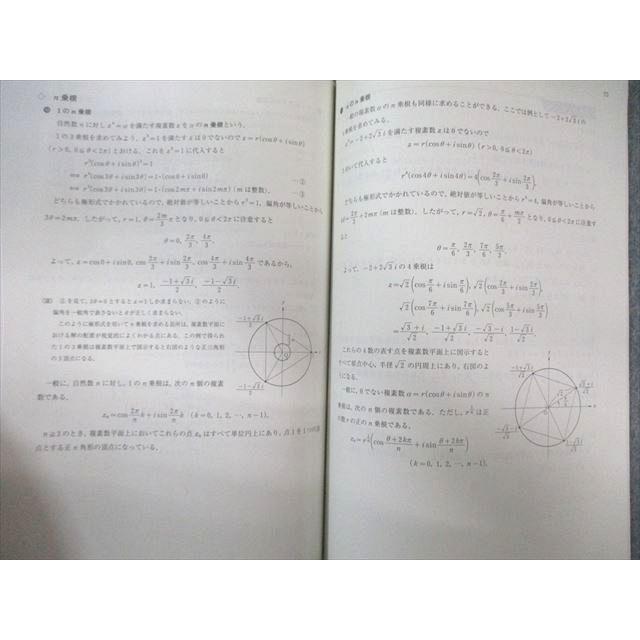 ◇ n乗根
❿ 1のn乗根
自然数nに対しzⁿ=αを満たす複素数zをαのn乗根という.
1の3乗根を求めてみよう. z³=1を満たすzは0でないのでz=r(cosθ+i sinθ)
(r>0, 0≦θ<2π)とおける. これをz³=1に代入すると
r³(cosθ+i sinθ)³=1
⇔ r³(cos3θ+i sin3θ)=1·(cos0+i sin0) …②
⇔ r³(cos3θ+i sin3θ)=1·(cos2mπ+i sin2mπ) (mは整数). …③
どちらも極形式でかかれているので, 絶対値が等しいことからr³=1, 偏角が等しいことから
3θ=2mπ. したがって, r=1, θ=2mπ/3 となり, 0≦θ<2πに注意すると
θ=0, 2π/3, 4π/3.
よって, z=cos0+i sin0, cos 2π/3+i sin 2π/3, cos 4π/3+i sin 4π/3 であるから,
z=1, (-1+√3i)/2, (-1-√3i)/2.
(注) ②を見て, 3θ=0とするとz=1しか求まらない. ②のように
偏角を一般角で表さないとθが正しく求まらない.
このように極形式を用いてn乗根を求める箇所は, 複素数平面に
おける解の配置が視覚的によくわかる点にある. この例で得られ
た1の3乗根は複素数平面上で図示すると右図のような正三角形
の3頂点になる.
一般に, 自然数nに対し, 1のn乗根は, 次のn個の複素
数である.
zₖ=cos 2π/n k+i sin 2π/n k (k=0, 1, 2, …, n-1).
n≧3のとき, 複素数平面上においてこれらの点zₖはすべて単位円上にあり, 点1を1つの頂
点とする正n角形の頂点になっている.
(-1+√3i)/2
(-1-√3i)/2
73
αのn乗根
一般の複素数αのn乗根も同様に求めることができる. ここでは例として-2+2√3iの
4乗根を求めてみる.
z⁴=-2+2√3iを満たす複素数zは0でないので
z=r(cosθ+i sinθ) (r>0, 0≦θ<2π)
とおいて代入すると
r⁴(cos4θ+i sin4θ)=4(cos 2π/3+i sin 2π/3).
どちらも極形式でかかれているので, 絶対値が等しいことからr⁴=4, 偏角が等しいことから
4θ=2π/3+2mπ (mは整数). したがって, r=√2, θ=π/6+mπ/2 となり, 0≦θ<2πに注意す
ると
θ=π/6, 2π/3, 7π/6, 5π/3.
よって, -2+2√3iの4乗根は
z=√2(cos π/6+i sin π/6), √2(cos 2π/3+i sin 2π/3),
√2(cos 7π/6+i sin 7π/6), √2(cos 5π/3+i sin 5π/3)
=(√3+i)/√2, (-1+√3i)/√2, (-√3-i)/√2, (1-√3i)/√2.
これらの4数の表す点を複素数平面上に図示すると
すべて原点中心, 半径√2の円周上にあり, 右図のよ
うになる.
一般に, 0でない複素数α=r(cosθ+i sinθ)のn
乗根は, 次のn個の複素数である. ただし, r^(1/n)は正
の数rの正のn乗根である.
zₖ=r^(1/n)(cos (θ+2kπ)/n+i sin (θ+2kπ)/n)
(k=0, 1, 2, …, n-1).
(-1+√3i)/√2
(√3+i)/√2
(-√3-i)/√2
(1-√3i)/√2